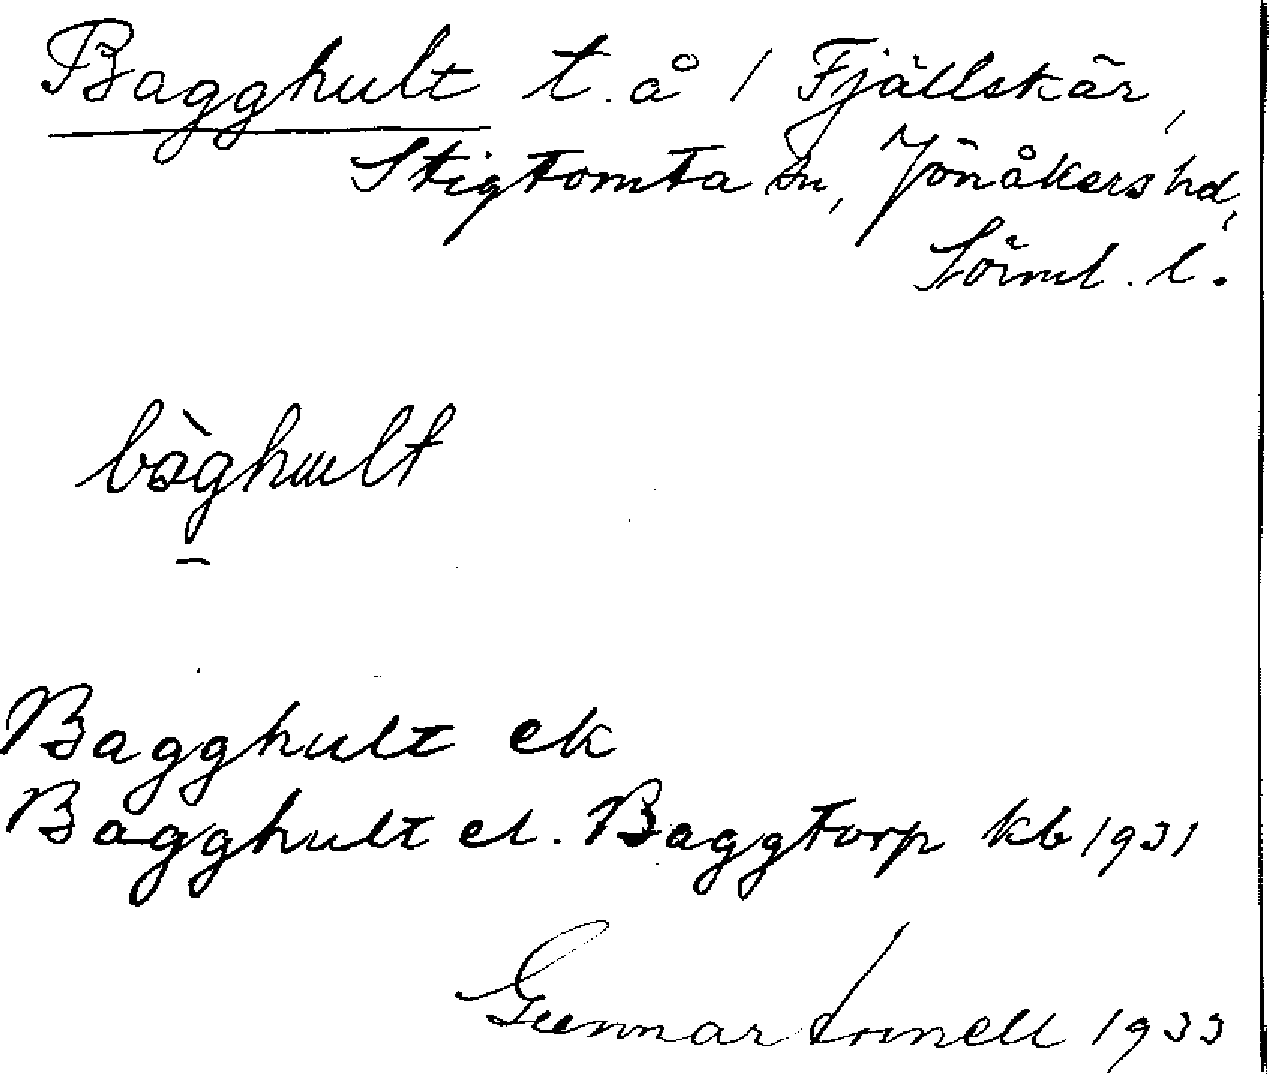 Bagghult t. å 1 Fjällskär,
Stigtomta sn, Jönåkers hd,
Sörml. l.
bàghult
Bagghult ek
Bagghult el. Baggtorp kb 1931
Gunnar 1933